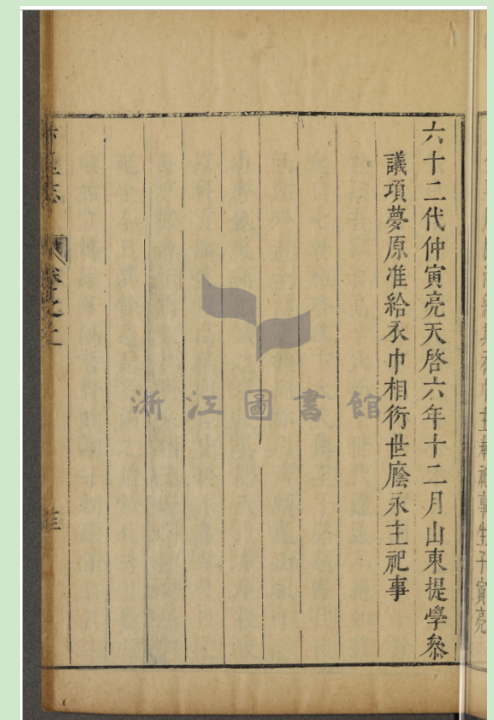 六十二代仲寅亮天啓六年十二月山東提學叅
議項夢原准給衣巾相衍世廕永主祀事
志
卷之
浙江圖書館